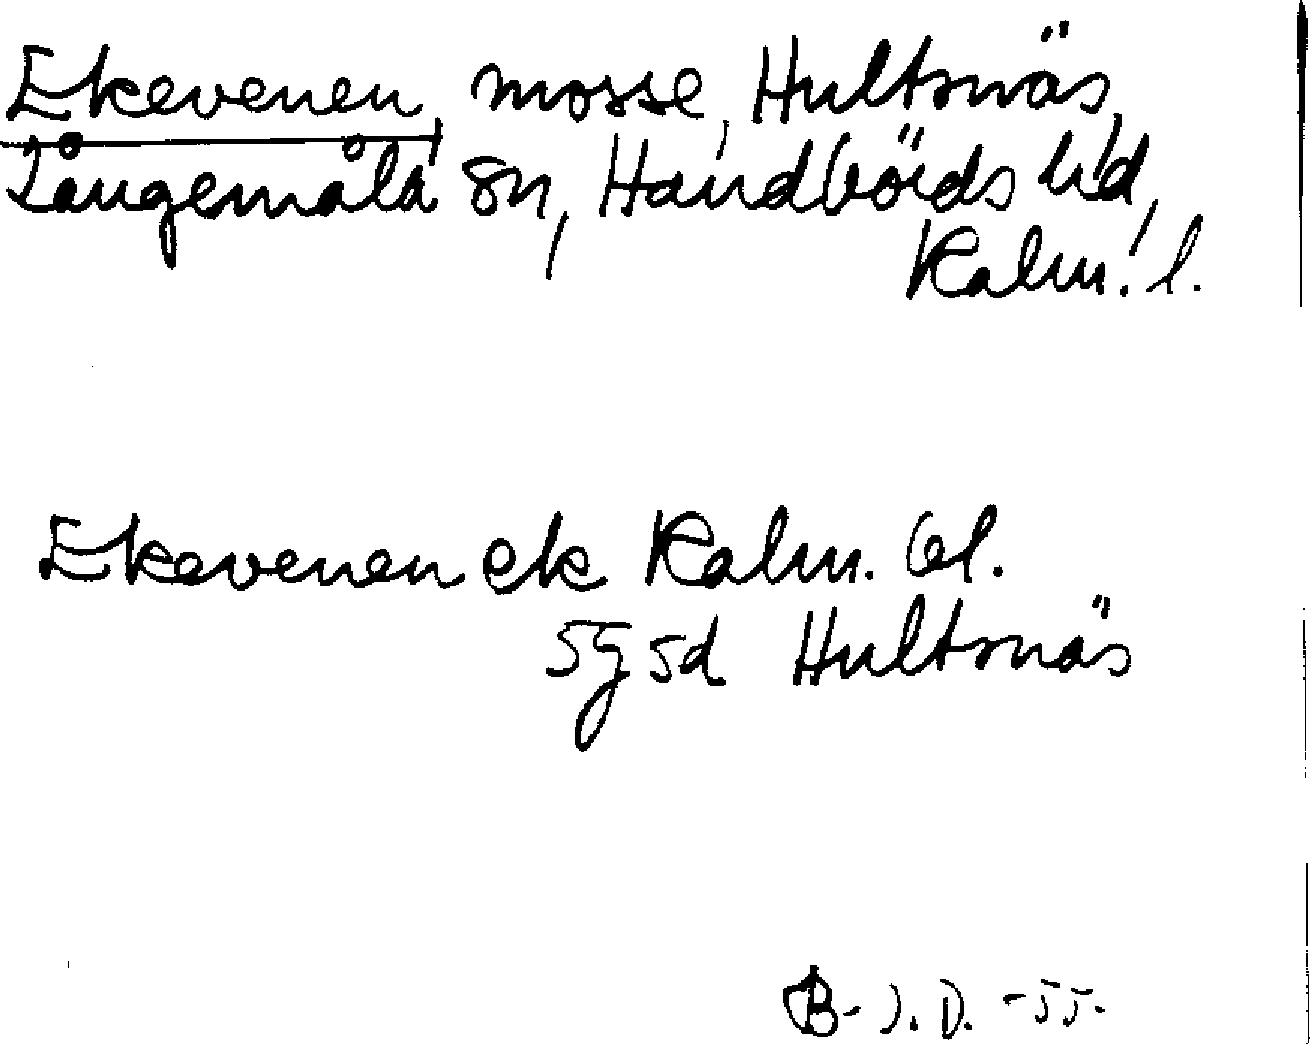 Ekevenen, mosse, Hultsnäs,
Långemåla sn, Handbörds hd,
Kalm. l.
Ekevenen ek Kalm. bl.
5g5d Hultsnäs
B-J.D. -55.